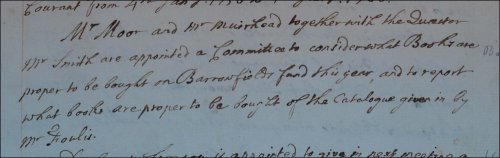 Courant from 4th
Mr Moor and Mr Muirhead together with the Director
Mr Smith are appointed a Committee to consider what Books are
proper to be bought on Barrowfields fund this year, and to report
what books are proper to be bought of the Catalogue given in by
Mr Foulis.
is appointed to give in next meeting a